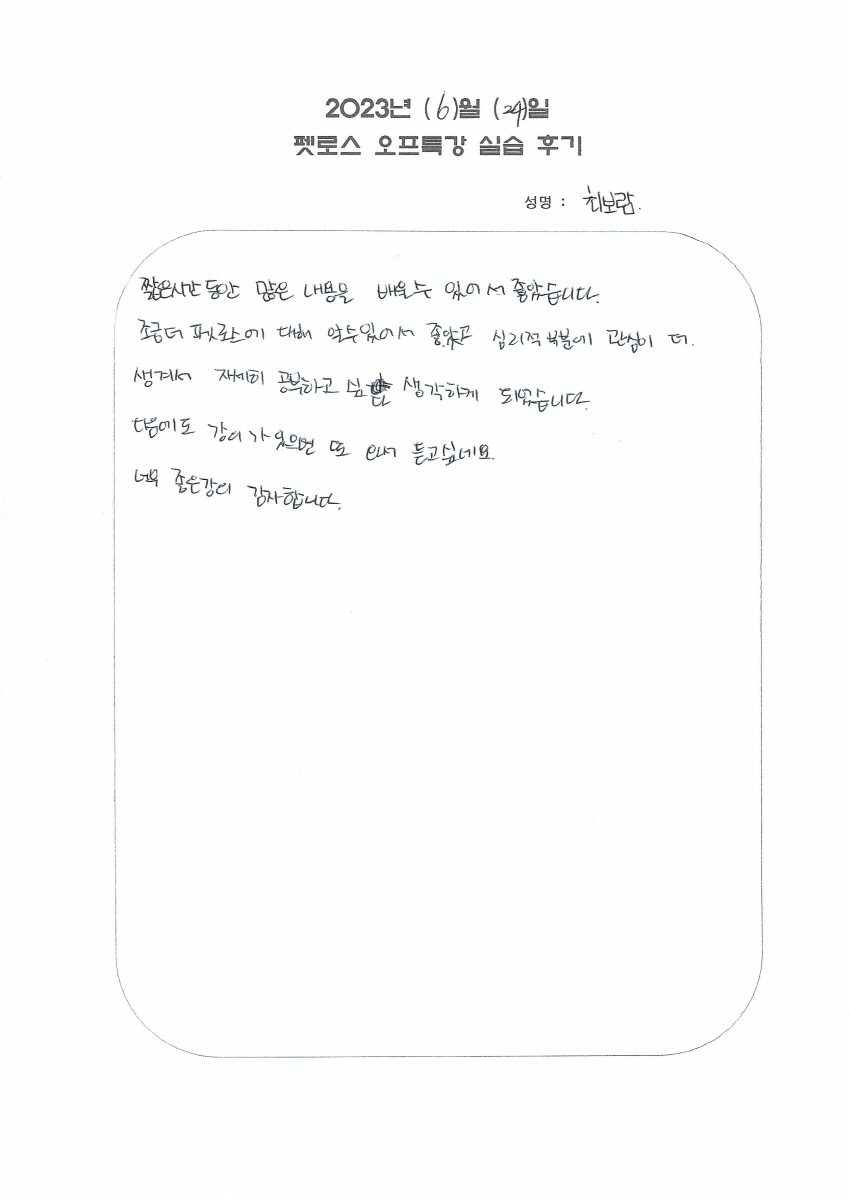 2023년 (6)월 (24)일
펫로스 오프특강 실습 후기
성명 : 최보람.
짧은시간 동안 많은 내용을 배울수 있어서 좋았습니다.
조금더 펫로스에 대해 알수있어서 좋았고 심리적 부분에 관심이 더.
생겨서 자세히 공부하고 싶다 생각하게 되었습니다.
다음에도 강의가 있으면 또 와서 듣고싶네요.
너무 좋은강의 감사합니다.